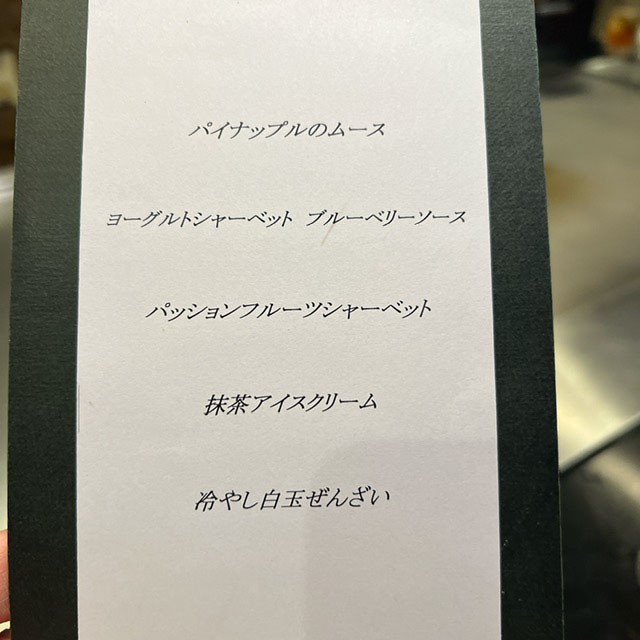 パイナップルのムース
ヨーグルトシャーベット ブルーベリーソース
パッションフルーツシャーベット
抹茶アイスクリーム
冷やし白玉ぜんざい